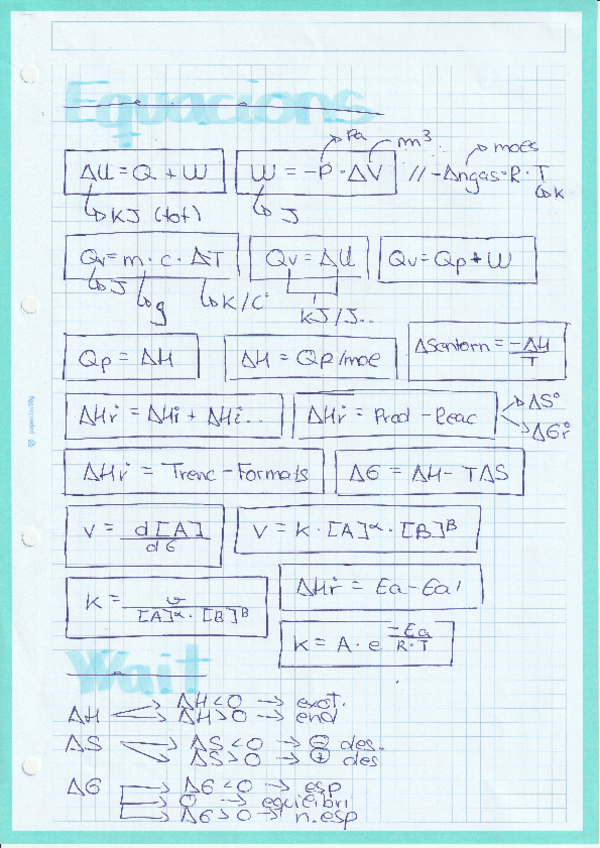 Equacions
Pa m³ moes
ΔU = Q + W W = -P · ΔV // -Δngas · R · T
KJ (tot) J K
Qv = m · c · ΔT Qv = ΔU Qv = Qp + W
J g K/Cº KJ/J...
Qp = ΔH ΔH = Qp/moe ΔSentorn = -ΔH/T
ΔHr = ΔHi + ΔHi... ΔHr = Prod - Reac ΔSº
ΔGrº
ΔHr = Trenc - Formats ΔG = ΔH - TΔS
V = d[A]/dt V = K · [A]^α · [B]^β
K = v/[A]^α · [B]^β ΔHr = Ea - Ea'
K = A · e^(-Ea/R·T)
Wait
ΔH ΔH < 0 → exot.
ΔH > 0 → end
ΔS ΔS < 0 → ⊖ des.
ΔS > 0 → ⊕ des
ΔG ΔG < 0 → esp
0 → equilibri
ΔG > 0 → n.esp